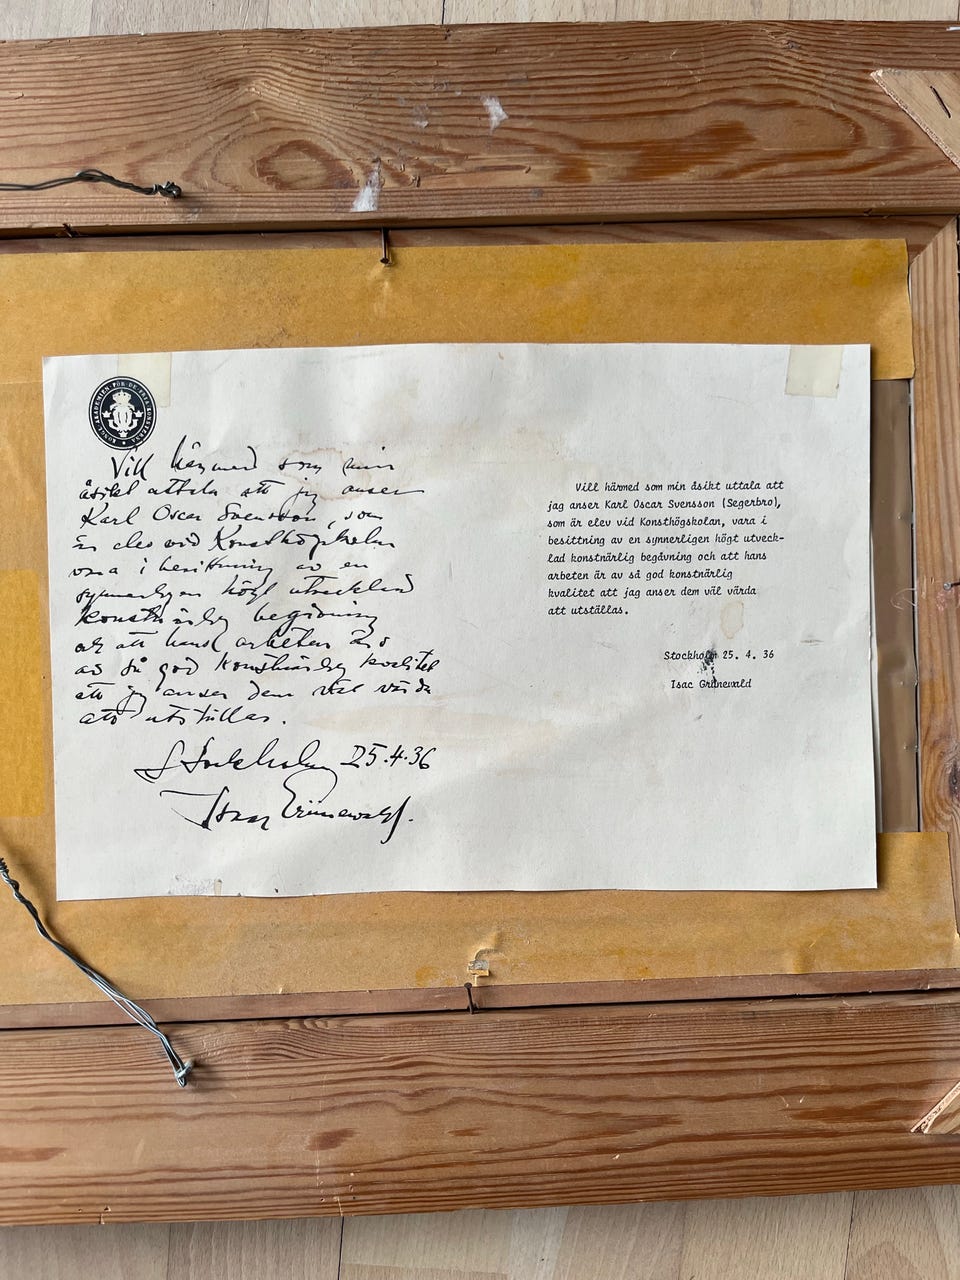 KONGL. AKADEMIEN FÖR DE FRIA KONSTERNA
Vill härmed som min
åsikt uttala att jag anser
Karl Oscar Svensson, som
är elev vid Konsthögskolan
vara i besittning av en
synnerligen högt utvecklad
konstnärlig begåvning
och att hans arbeten äro
av så god konstnärlig kvalitet
att jag anser dem väl värda
att utställas.
Stockholm 25.4.36
Isaac Grünewald.
Vill härmed som min åsikt uttala att
jag anser Karl Oscar Svensson (Segerbro),
som är elev vid Konsthögskolan, vara i
besittning av en synnerligen högt utveck-
lad konstnärlig begåvning och att hans
arbeten är av så god konstnärlig
kvalitet att jag anser dem väl värda
att utställas.
Stockholm 25. 4. 36
Isac Grünewald